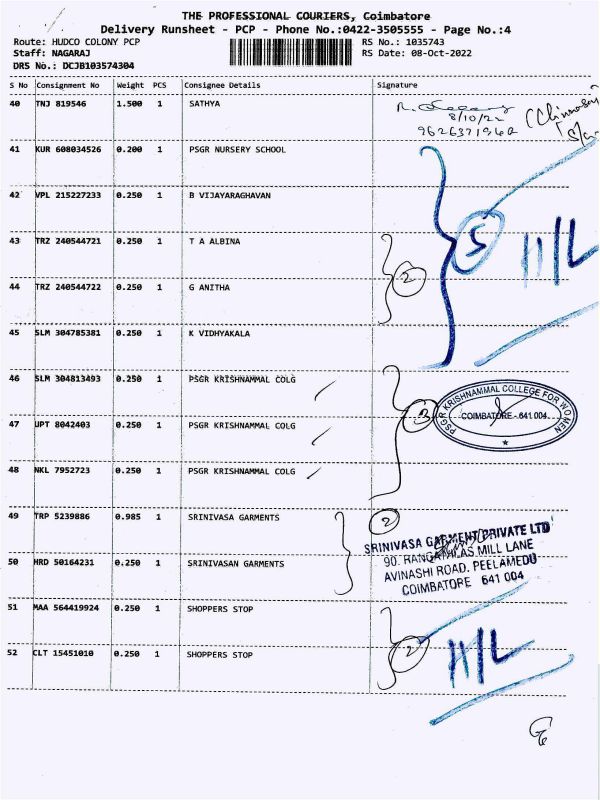 THE PROFESSIONAL COURIERS, Coimbatore
Delivery Runsheet - PCP - Phone No.:0422-3505555 - Page No.:4
Route: HUDCO COLONY PCP RS No.: 1035743
Staff: NAGARAJ RS Date: 08-Oct-2022
DRS No.: DCJB103574304
S No Consignment No Weight PCS Consignee Details Signature
40 TNJ 819546 1.500 1 SATHYA
8/10/22
41 KUR 608034526 0.200 1 PSGR NURSERY SCHOOL
42 VPL 215227233 0.250 1 B VIJAYARAGHAVAN
5
43 TRZ 240544721 0.250 1 T A ALBINA
2
44 TRZ 240544722 0.250 1 G ANITHA
45 SLM 304785381 0.250 1 K VIDHYAKALA
46 SLM 304813493 0.250 1 PSGR KRISHNAMMAL COLG
3
PSGR KRISHNAMMAL COLLEGE FOR WOMEN
COIMBATORE-641 004
47 UPT 8042403 0.250 1 PSGR KRISHNAMMAL COLG
48 NKL 7952723 0.250 1 PSGR KRISHNAMMAL COLG
49 TRP 5239886 0.985 1 SRINIVASA GARMENTS
2
SRINIVASA GARMENT PRIVATE LTD
90. RANGAVILAS MILL LANE
AVINASHI ROAD, PEELAMEDU
COIMBATORE 641 004
50 HRD 50164231 0.250 1 SRINIVASAN GARMENTS
51 MAA 564419924 0.250 1 SHOPPERS STOP
2
52 CLT 15451010 0.250 1 SHOPPERS STOP